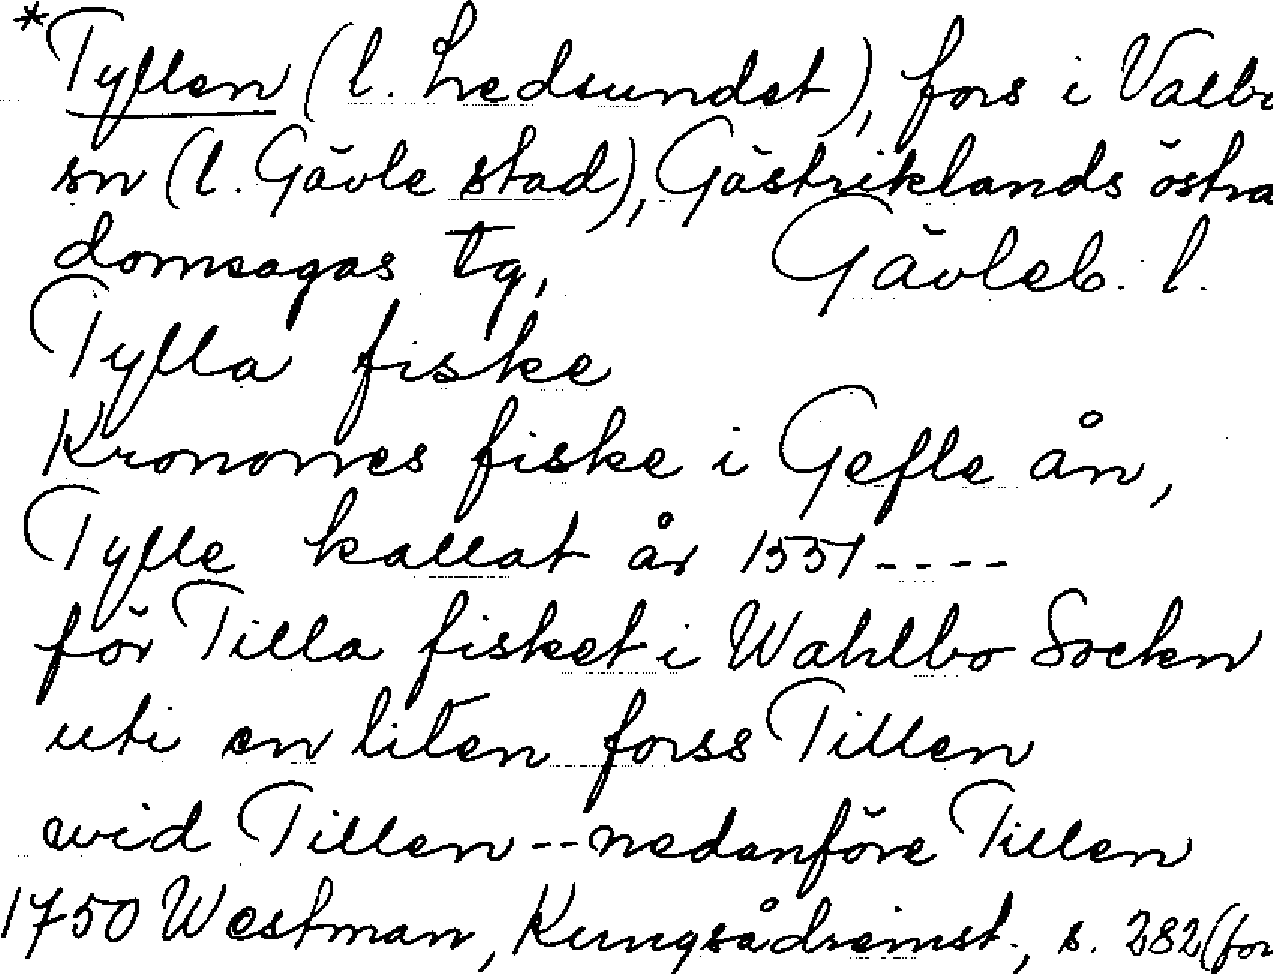 *Tyllen (l. Hedsundet), fors i Valbo
sn (l. Gävle stad), Gästriklands östra
domsagas tg, Gävleb. l.
Tylla fiske
Kronones fiske i Gefle ån,
Tylle kallat år 1551----
för Tilla fisket i Wahlbo Sockn
uti en liten forss Tillen
wid Tillen--nedanföre Tillen
1750 Westman, Kungsådreinst., s. 282 (for